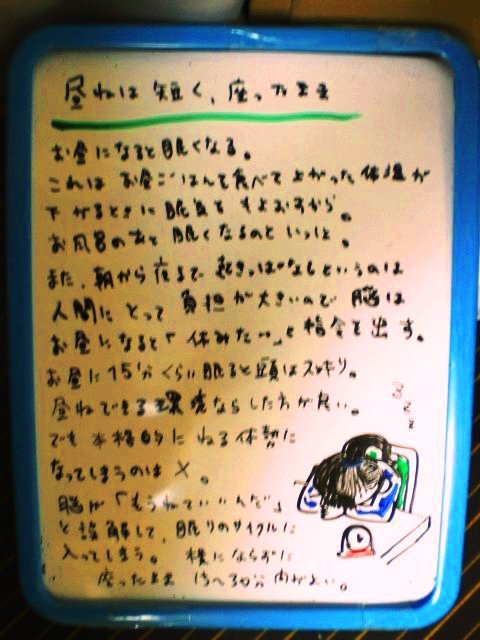 昼ねは短く、座ったまま
お昼になると眠くなる。
これは お昼ごはんを食べて上がった体温が
下がるときに眠気をもよおすから。
お風呂のあと眠くなるのといっしょ。
また、朝から夜まで起きっぱなしというのは
人間にとって負担が大きいので脳は
お昼になると「休みたい」と指令を出す。
お昼に15分くらい眠ると頭はスッキリ。
昼ねできる環境ならした方が良い。
でも本格的にねる体勢に
なってしまうのは×。
脳が「もうねていいんだ」
と誤解して、眠りのサイクルに
入ってしまう。横にならずに
座ったまま 15〜30分内がよい。
zzz